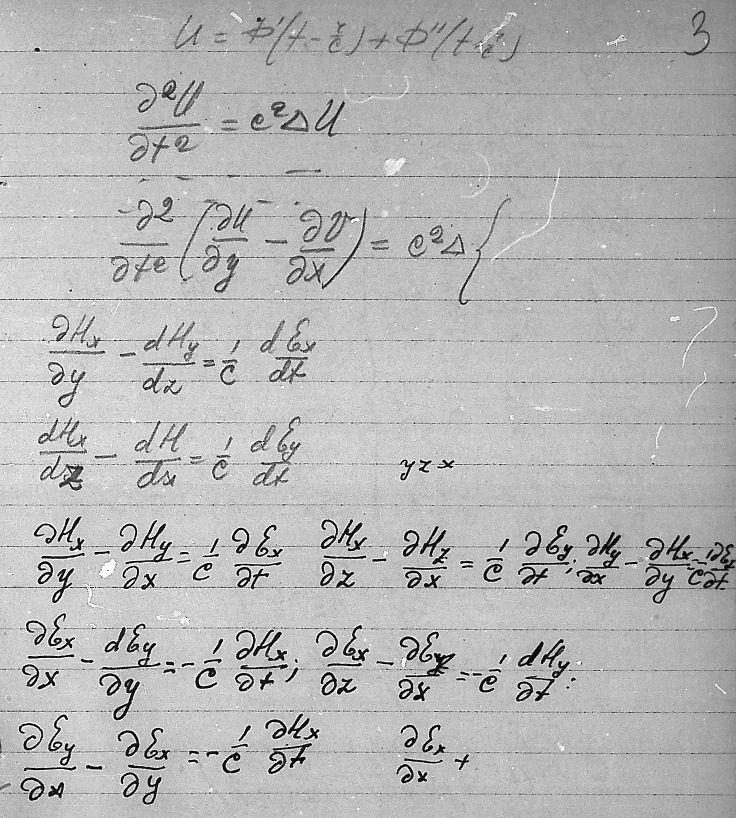 U = Φ'(t - r/c) + Φ''(t - r/c) 3
∂²U/∂t² = c²ΔU
∂²/∂t² (∂U/∂y - ∂V/∂x) = c²Δ{
∂Hx/∂y - dHy/dz = 1/c dEx/dt
dHx/dz - dH/dx = 1/c dEy/dt
y z x
∂Hx/∂y - ∂Hy/∂x = 1/c ∂Ex/∂t ∂Hx/∂z - ∂Hz/∂x = 1/c ∂Ey/∂t; ∂Hy/∂x - ∂Hx/∂y = 1/c ∂Ex/∂t
∂Ex/∂x - dEy/∂y = - 1/c ∂Hx/∂t; ∂Ex/∂z - ∂Ez/∂x = - 1/c dHy/∂t;
∂Ey/∂x - ∂Ex/∂y = - 1/c ∂Hx/∂t ∂Ex/∂x +